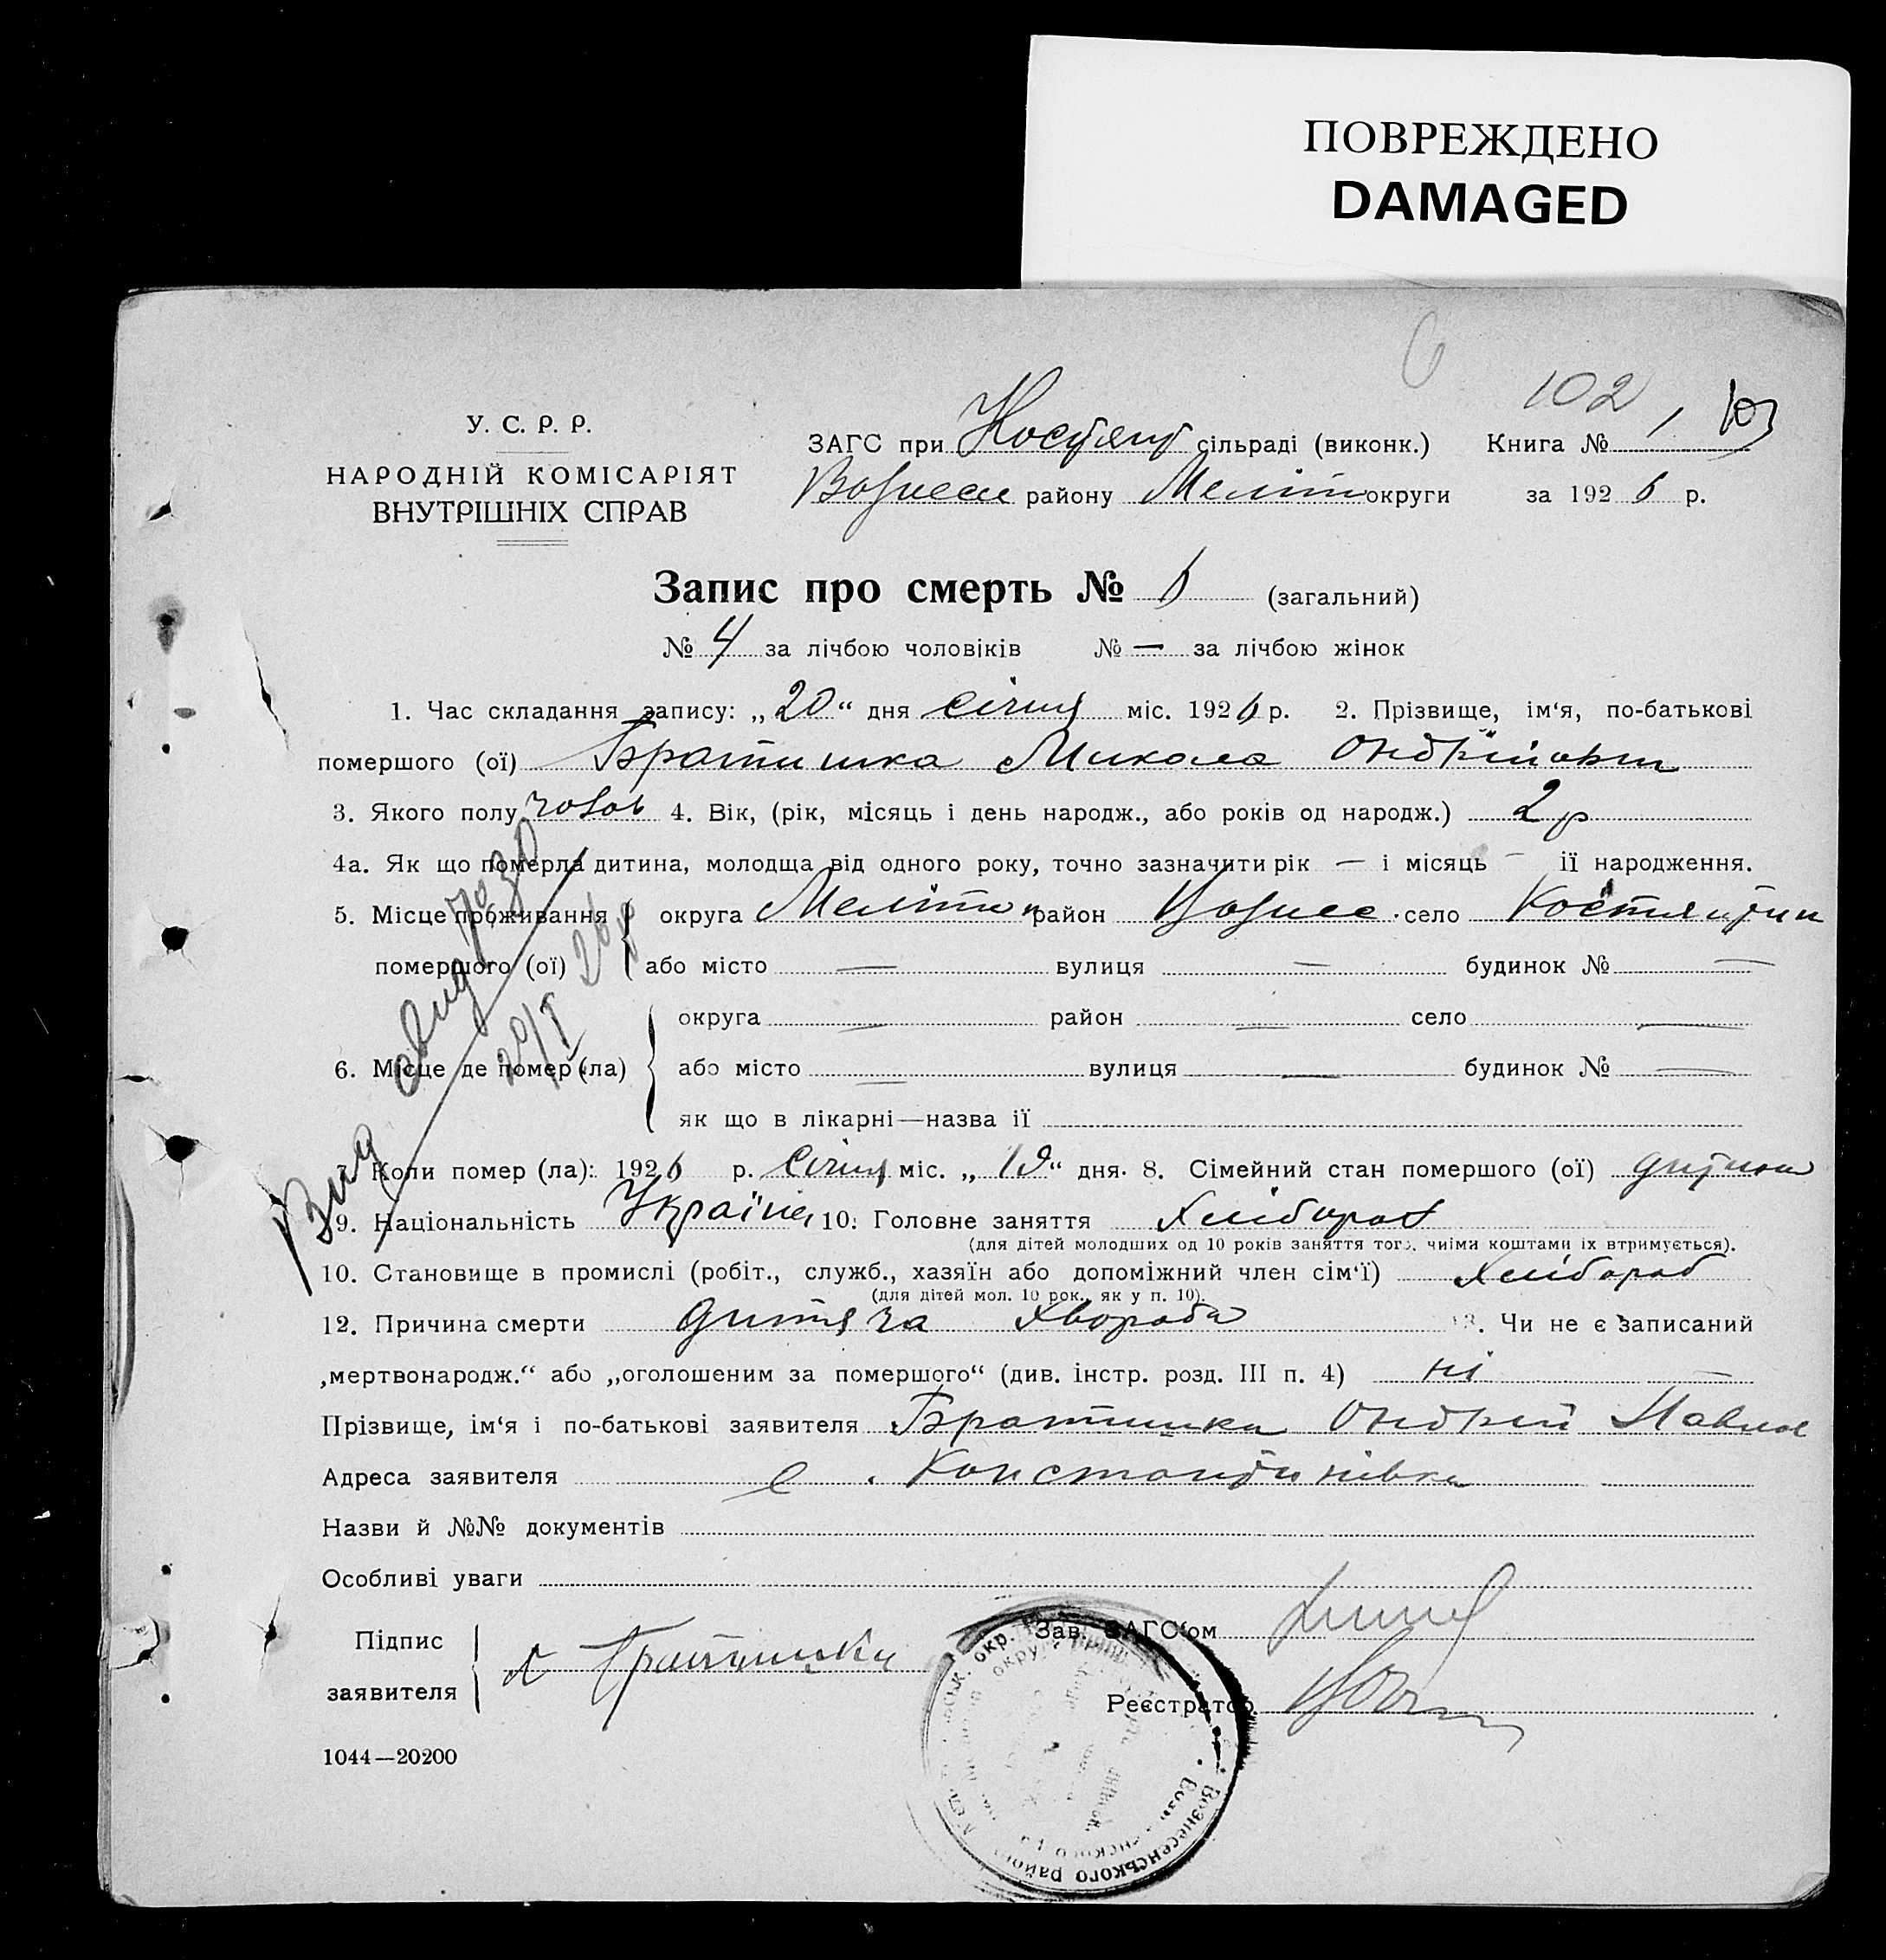 ПОВРЕЖДЕНО
DAMAGED
6
102
103
У. С. Р. Р.
НАРОДНІЙ КОМІСАРІЯТ
ВНУТРІШНІХ СПРАВ
ЗАГС при сільраді (виконк.) Книга № 1
Вознесен району Меліт округи за 1926 р.
Запис про смерть № 6 (загальний)
№ 4 за лічбою чоловіків № — за лічбою жінок
1. Час складання запису: „20“ дня січня міс. 1926 р. 2. Прізвище, ім‘я, по-батькові
помершого (ої) Братишка Микола Ондрійович
3. Якого полу чолов 4. Вік, (рік, місяць і день народж., або років од народж.) 2 р
4а. Як що померла дитина, молодща від одного року, точно зазначити рік — і місяць — її народження.
5. Місце проживання округа Меліто район Вознес. село
помершого (ої) або місто — вулиця — будинок № —
округа — район — село —
6. Місце де помер (ла) або місто — вулиця — будинок № —
як що в лікарні—назва ії
7. Коли помер (ла): 1926 р. Січня міс. „19“ дня. 8. Сімейний стан помершого (ої) дитина
9. Національність Україне 10. Головне заняття Хлібороб
(для дітей молодших од 10 років заняття того, чиїми коштами їх втримується).
10. Становище в промислі (робіт., служб., хазяїн або допоміжний член сім‘ї) Хлібороб
(для дітей мол. 10 рок., як у п. 10).
12. Причина смерти дитяча хвороба 13. Чи не є записаний
„мертвонародж.“ або „оголошеним за помершого“ (див. інстр. розд. III п. 4) ні —
Прізвище, ім‘я і по-батькові заявителя Братишка Ондрій Павлов
Адреса заявителя с. Константинівка
Назви й №№ документів
Особливі уваги
Підпис
заявителя Братишка
Зав. ЗАГС‘ом
Реєстратор
1044—20200
Вознесенського район